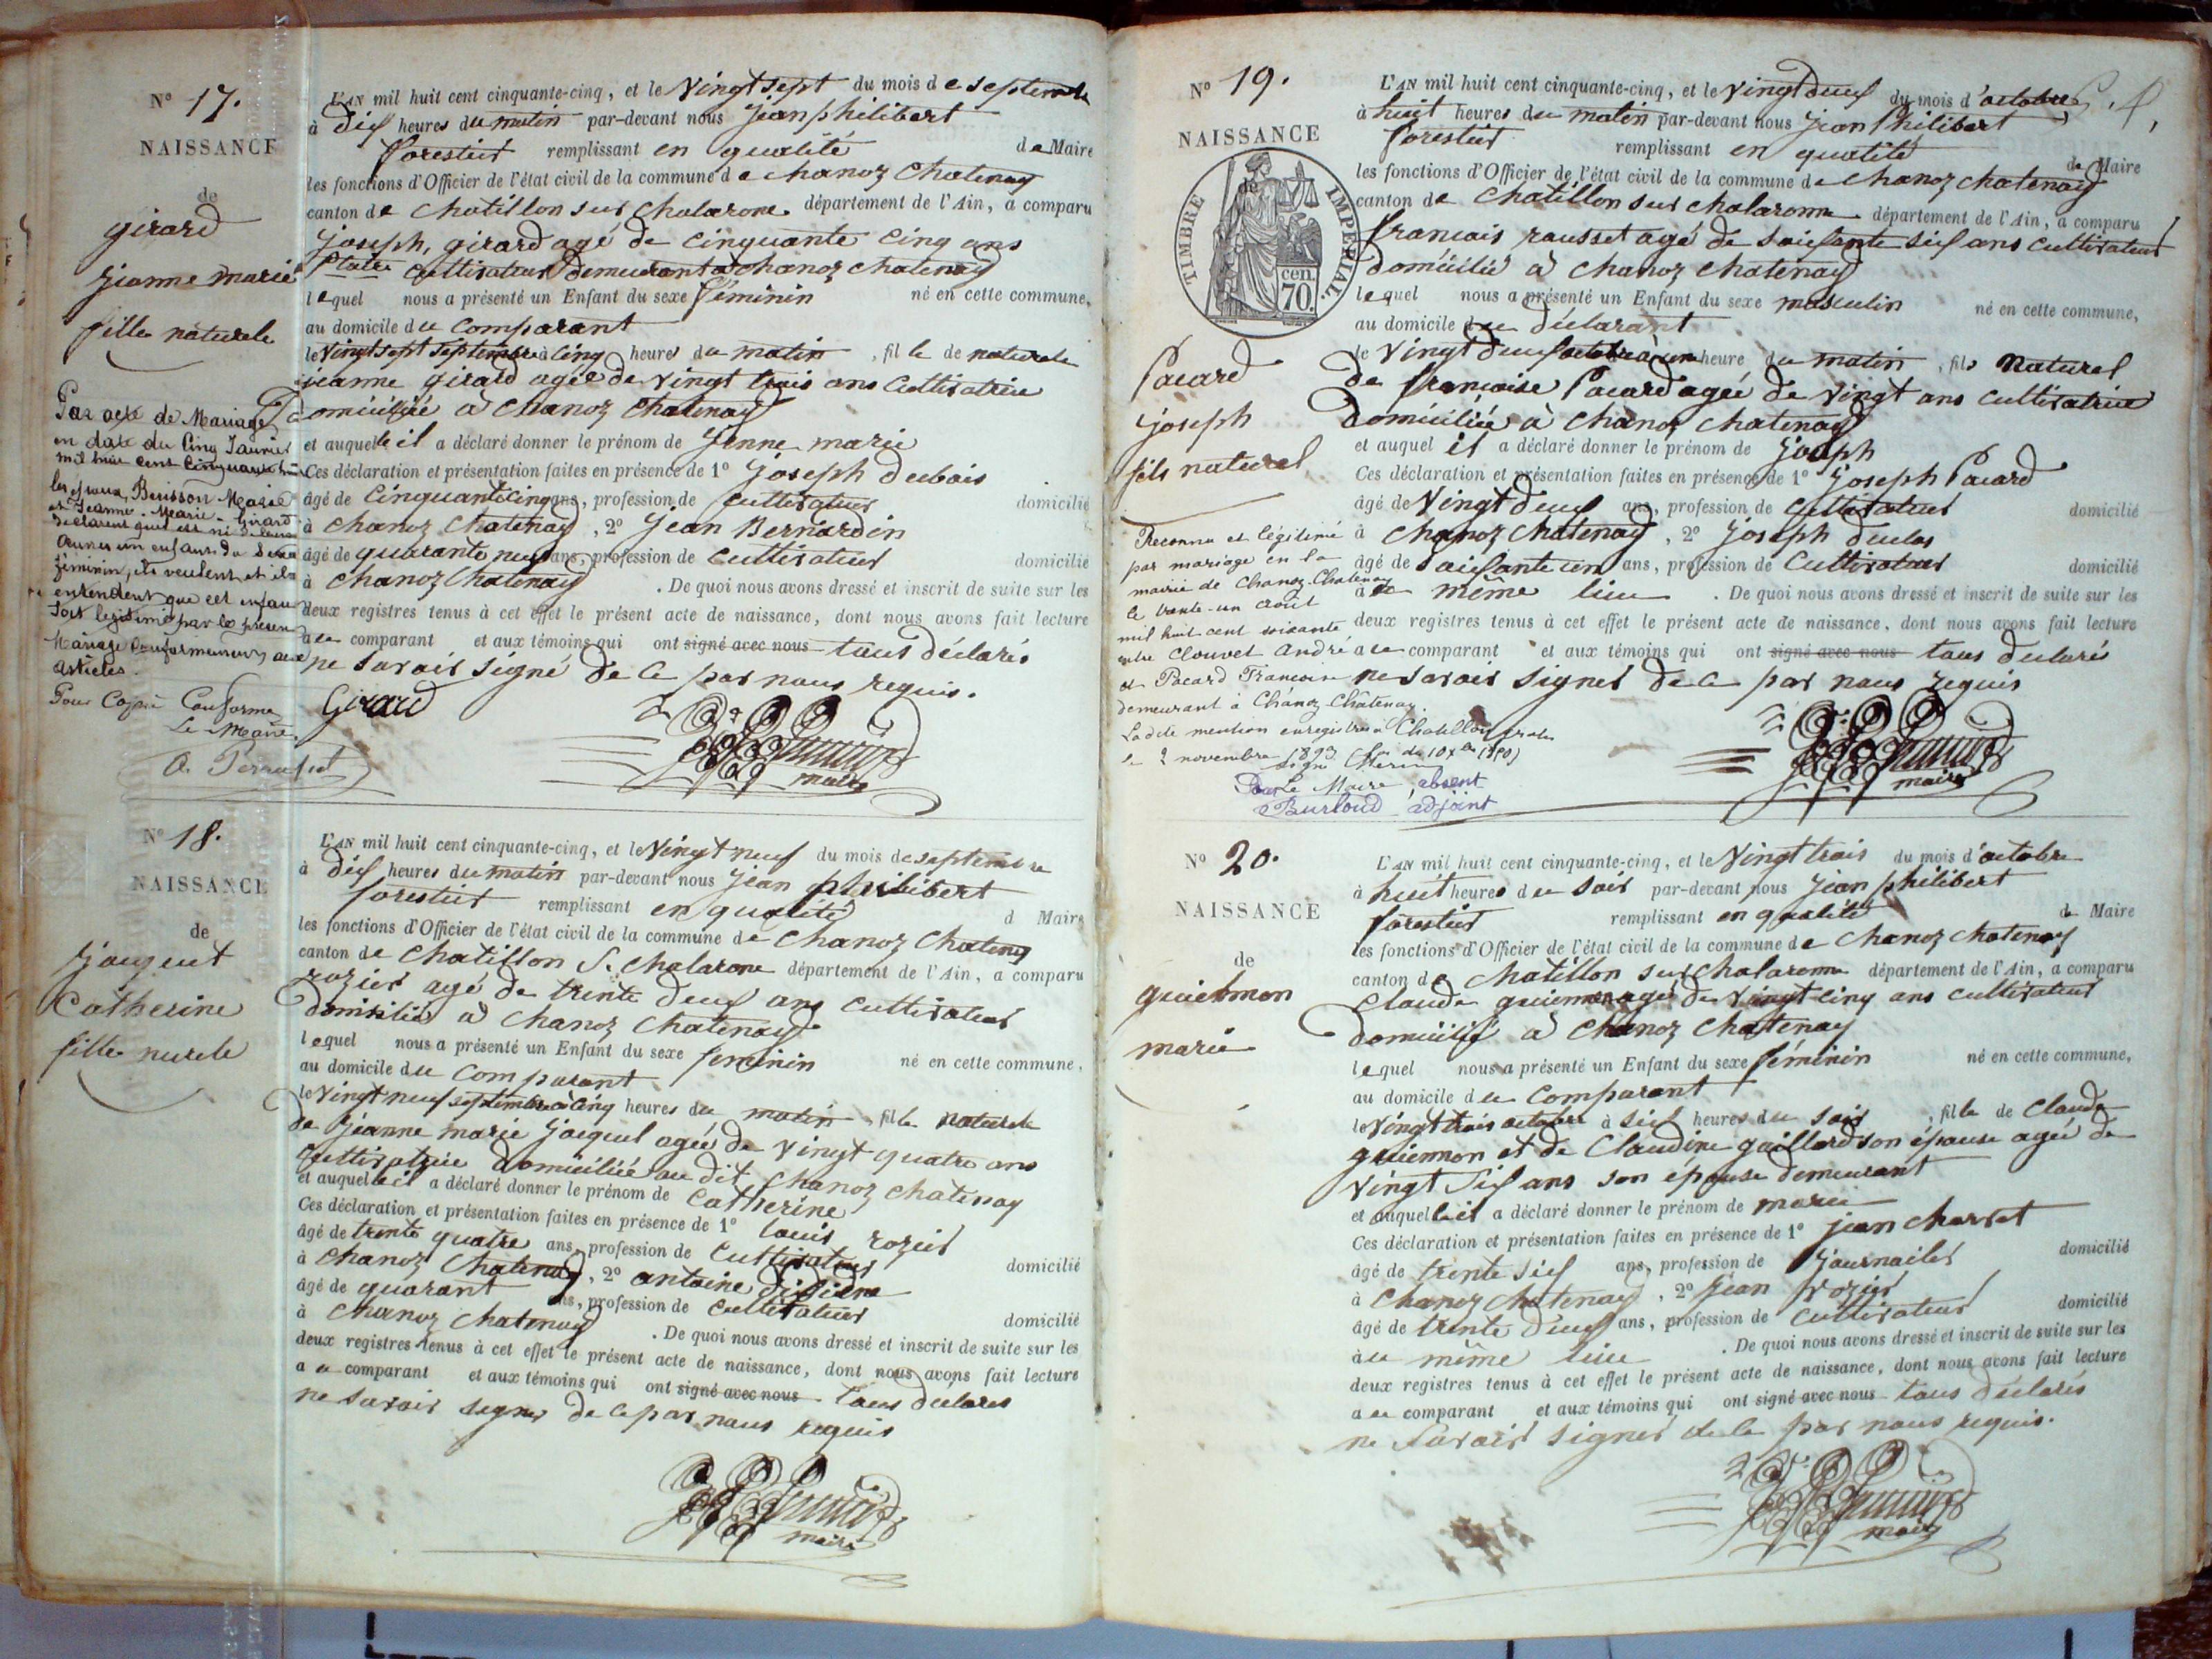 N° 17.
NAISSANCE
de
girard
jeanne marie
fille naturele
L'AN mil huit cent cinquante-cinq, et le Vingt sept du mois de septembre
à dix heures du matin par-devant nous jean philibert
forestier remplissant en qualité de Maire
les fonctions d'Officier de l'état civil de la commune de chanoz chatenay
canton de chatillon sur chalarone département de l'Ain, a comparu
joseph, girard agé de cinquante cinq ans
cultivateur demeurant a chanoz chatenay
lequel nous a présenté un Enfant du sexe féminin né en cette commune,
au domicile du comparant
le Vingt sept septembre à cinq heures du matin, fille de naturele
jeanne girard agée de vingt trois ans cultivatrice
domiciliée à chanoz chatenay
et auquelle il a déclaré donner le prénom de Jenne marie
Ces déclaration et présentation faites en présence de 1° joseph dubois
âgé de cinquante cinq ans, profession de cultivateur domicilié
à chanoz chatenay, 2° jean Bernardin
âgé de quarante neuf ans, profession de cultivateur domicilié
à chanoz chatenay. De quoi nous avons dressé et inscrit de suite sur les
deux registres tenus à cet effet le présent acte de naissance, dont nous avons fait lecture
au comparant et aux témoins qui ont signé avec nous tous déclarés
ne savoir signé de ce par nous requis.
Girard
maire
Par acte de Mariage
en date du Cinq Janvier
mil huit cent cinquante
les époux Buisson Marie
et Jeanne-Marie Girard
déclarent qu'il est né
un enfant du sexe
féminin, ils veulent et ils
entendent que cet enfant
soit légitimé par le présent
Mariage conformément aux
articles.
Pour Copie Conforme
Le Maire.
N° 18.
NAISSANCE
de
Catherine
L'AN mil huit cent cinquante-cinq, et le Vingt neuf du mois de septembre
à dix heures du matin par-devant nous jean philibert
forestier remplissant en qualité d Maire
les fonctions d'Officier de l'état civil de la commune de chanoz chateny
canton de chatillon S. chalarone département de l'Ain, a comparu
rozier agé de trente deux ans cultivateur
domicilié à chanoz chatenay
lequel nous a présenté un Enfant du sexe feminin né en cette commune,
au domicile du comparant
le Vingt neuf septembre à cinq heures du matin, fille naturele
de jeanne marie jacquet agée de vingt quatre ans
cultivatrice domiciliée au dit chanoz chatenay
et auquelle il a déclaré donner le prénom de Catherine
Ces déclaration et présentation faites en présence de 1° louis rozier
âgé de trente quatre ans, profession de cultivateur domicilié
à chanoz chatenay, 2° antoine
âgé de quarant ans, profession de cultivateur domicilié
à chanoz chatenay. De quoi nous avons dressé et inscrit de suite sur les
deux registres tenus à cet effet le présent acte de naissance, dont nous avons fait lecture
au comparant et aux témoins qui ont signé avec nous tous déclarés
ne savoir signer de ce par nous requis
maire
N° 19.
NAISSANCE
de
TIMBRE IMPERIAL.
70. cen.
Pacard
joseph
fils naturel
L'AN mil huit cent cinquante-cinq, et le Vingt deux du mois d'octobre
à huit heures du matin par-devant nous jean Philibert
forestier remplissant en qualité de Maire
les fonctions d'Officier de l'état civil de la commune de chanoz chatenay
canton de chatillon sur chalaronne département de l'Ain, a comparu
francois rousset agé de soixante six ans cultivateur
domicilié à chanoz chatenay
lequel nous a présenté un Enfant du sexe masculin né en cette commune,
au domicile du déclarant
le Vingt deux octobre à une heure du matin, fils naturel
de francoise Pacard agée de vingt ans cultivatrice
domiciliée à chanoz chatenay
et auquel il a déclaré donner le prénom de joseph
Ces déclaration et présentation faites en présence de 1° joseph Pacard
âgé de Vingt deux ans, profession de cultivateur domicilié
à chanoz chatenay, 2° joseph
âgé de soixante un ans, profession de cultivateur domicilié
au même lieu. De quoi nous avons dressé et inscrit de suite sur les
deux registres tenus à cet effet le présent acte de naissance, dont nous avons fait lecture
au comparant et aux témoins qui ont signé avec nous tous déclarés
ne savoir signer de ce par nous requis
maire
Reconnu et légitimé
par mariage en la
mairie de Chanoz-Chatenay
le trente-un août
mil huit cent soixante
entre Clouvet André
et Pacard Francoise
demeurant à Chanoz-Châtenay.
Ladite mention enregistrée à Chatillon
le 2 novembre 1893
Pour Le Maire absent
Burloud adjoint
N° 20.
NAISSANCE
de
marie
L'AN mil huit cent cinquante-cinq, et le Vingt trois du mois d'octobre
à huit heures du soir par-devant nous jean philibert
forestier remplissant en qualité de Maire
les fonctions d'Officier de l'état civil de la commune de chanoz chatenay
canton de chatillon sur chalaronne département de l'Ain, a comparu
Claude guiemon agé de vingt-cinq ans cultivateur
domicilié à chanoz chatenay
lequel nous a présenté un Enfant du sexe féminin né en cette commune,
au domicile du comparant
le Vingt trois octobre à six heures du soir, fille de Claude
guiemon et de Claudine gaillard son épouse agée de
vingt six ans son épouse demeurant
et auquelle il a déclaré donner le prénom de marie
Ces déclaration et présentation faites en présence de 1° jean charvet
âgé de trente six ans, profession de journalier domicilié
à chanoz chatenay, 2° jean rozier
âgé de trente deux ans, profession de cultivateur domicilié
au même lieu. De quoi nous avons dressé et inscrit de suite sur les
deux registres tenus à cet effet le présent acte de naissance, dont nous avons fait lecture
au comparant et aux témoins qui ont signé avec nous tous déclarés
ne savoir signer de ce par nous requis.
maire